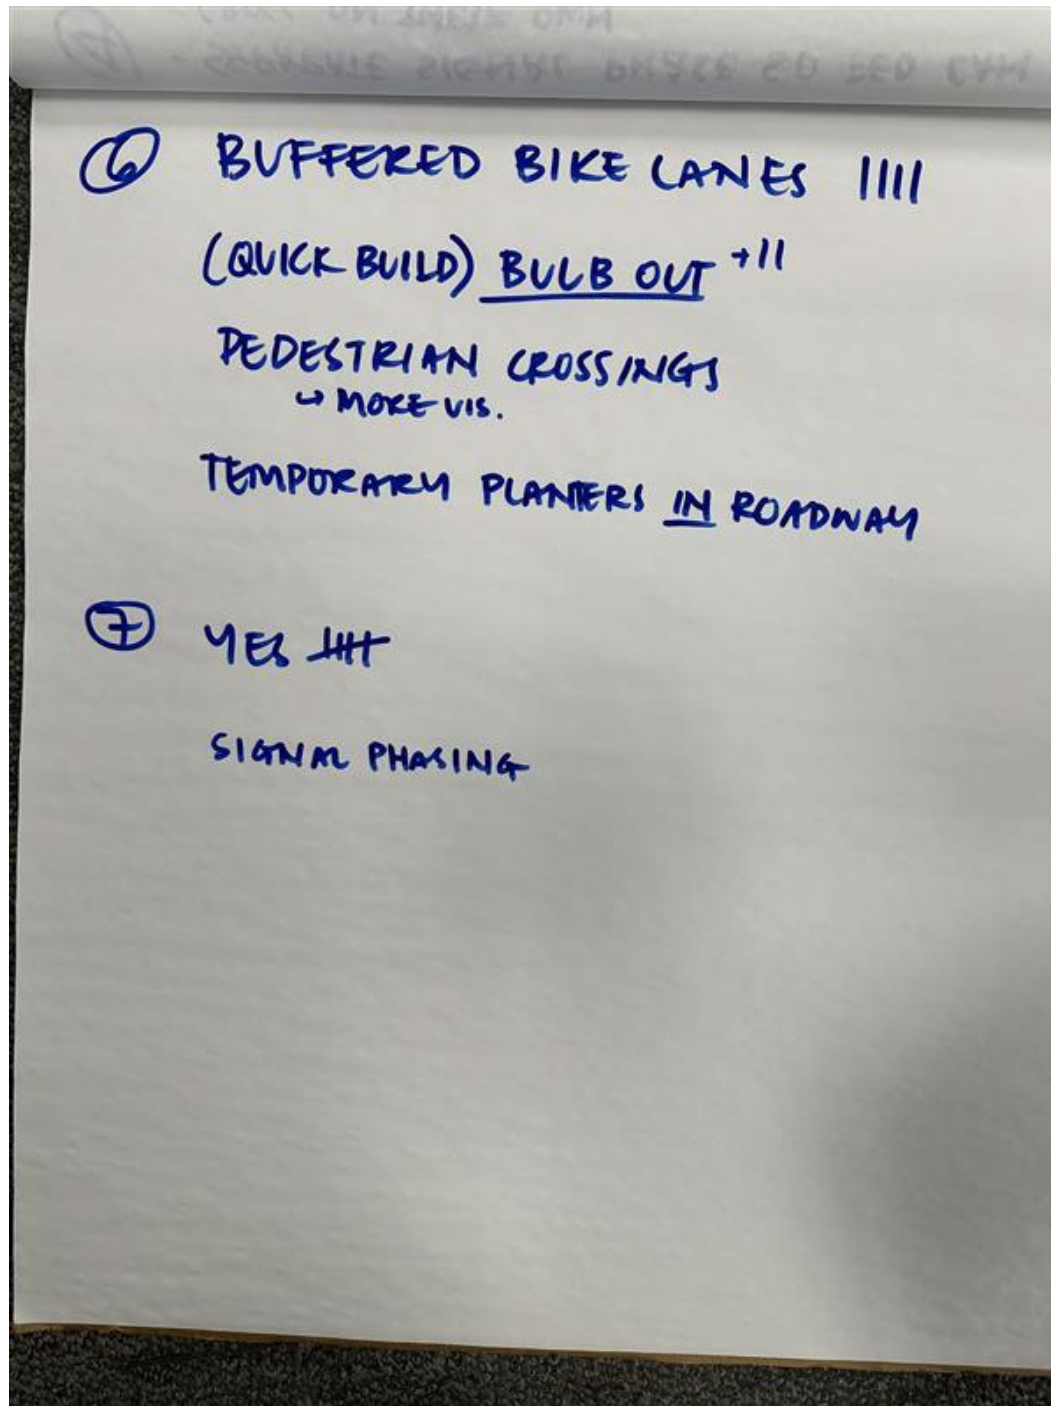 ⑥ BUFFERED BIKE LANES ||||
(QUICK BUILD) BULB OUT +||
PEDESTRIAN CROSSINGS
↳ MORE VIS.
TEMPORARY PLANTERS IN ROADWAY
⑦ YES 卌
SIGNAL PHASING